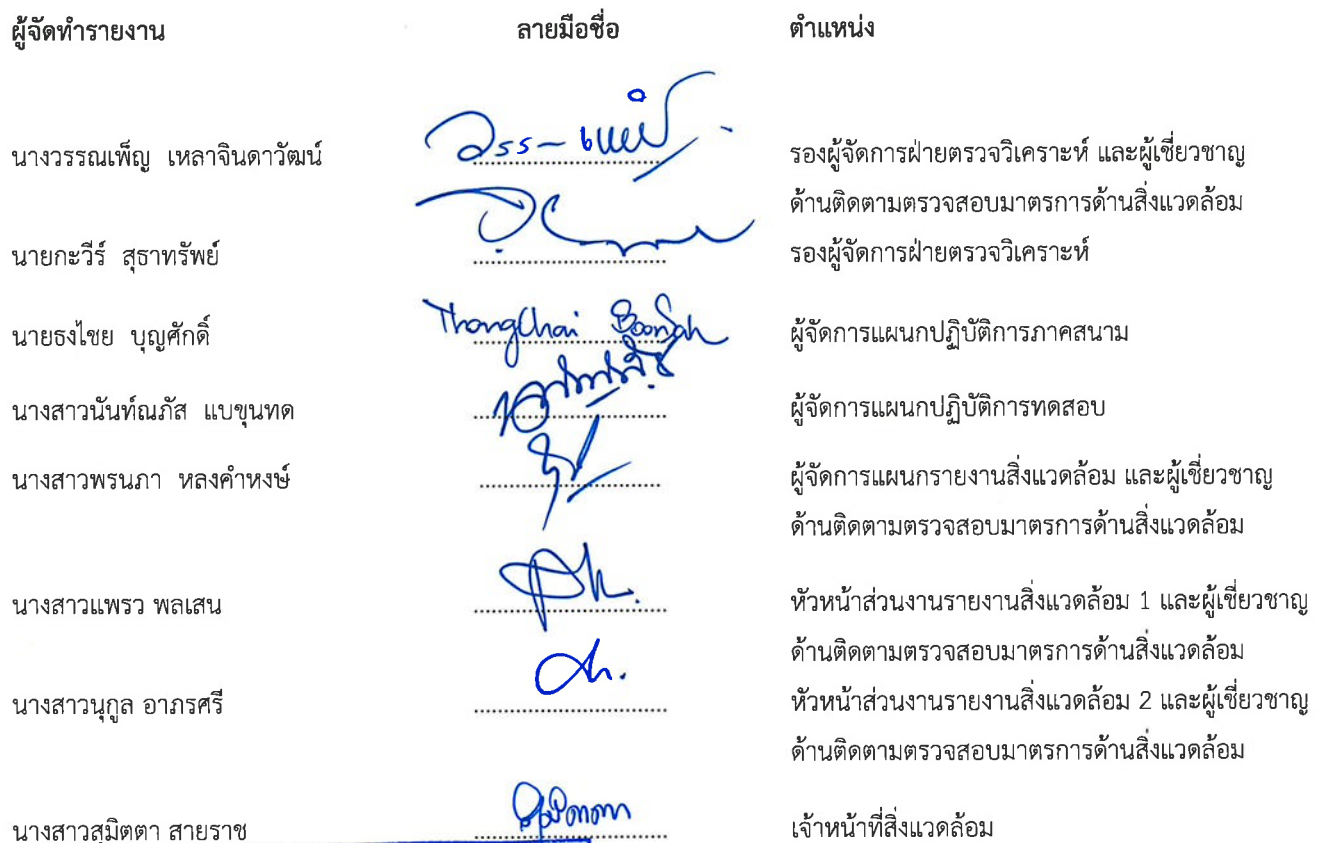 ผู้จัดทำรายงาน ลายมือชื่อ ตำแหน่ง
นางวรรณเพ็ญ เหลาจินดาวัฒน์ วรร-เพ็ญ รองผู้จัดการฝ่ายตรวจวิเคราะห์ และผู้เชี่ยวชาญ
ด้านติดตามตรวจสอบมาตรการด้านสิ่งแวดล้อม
นายกะวีร์ สุธาทรัพย์ รองผู้จัดการฝ่ายตรวจวิเคราะห์
นายธงไชย บุญศักดิ์ Thongchai Boonsak ผู้จัดการแผนกปฏิบัติการภาคสนาม
นางสาวนันท์ณภัส แบขุนทด ผู้จัดการแผนกปฏิบัติการทดสอบ
นางสาวพรนภา หลงคำหงษ์ ผู้จัดการแผนกรายงานสิ่งแวดล้อม และผู้เชี่ยวชาญ
ด้านติดตามตรวจสอบมาตรการด้านสิ่งแวดล้อม
นางสาวแพรว พลเสน หัวหน้าส่วนงานรายงานสิ่งแวดล้อม 1 และผู้เชี่ยวชาญ
ด้านติดตามตรวจสอบมาตรการด้านสิ่งแวดล้อม
นางสาวนุกูล อาภรศรี หัวหน้าส่วนงานรายงานสิ่งแวดล้อม 2 และผู้เชี่ยวชาญ
ด้านติดตามตรวจสอบมาตรการด้านสิ่งแวดล้อม
นางสาวสุมิตตา สายราช สุมิตตา เจ้าหน้าที่สิ่งแวดล้อม